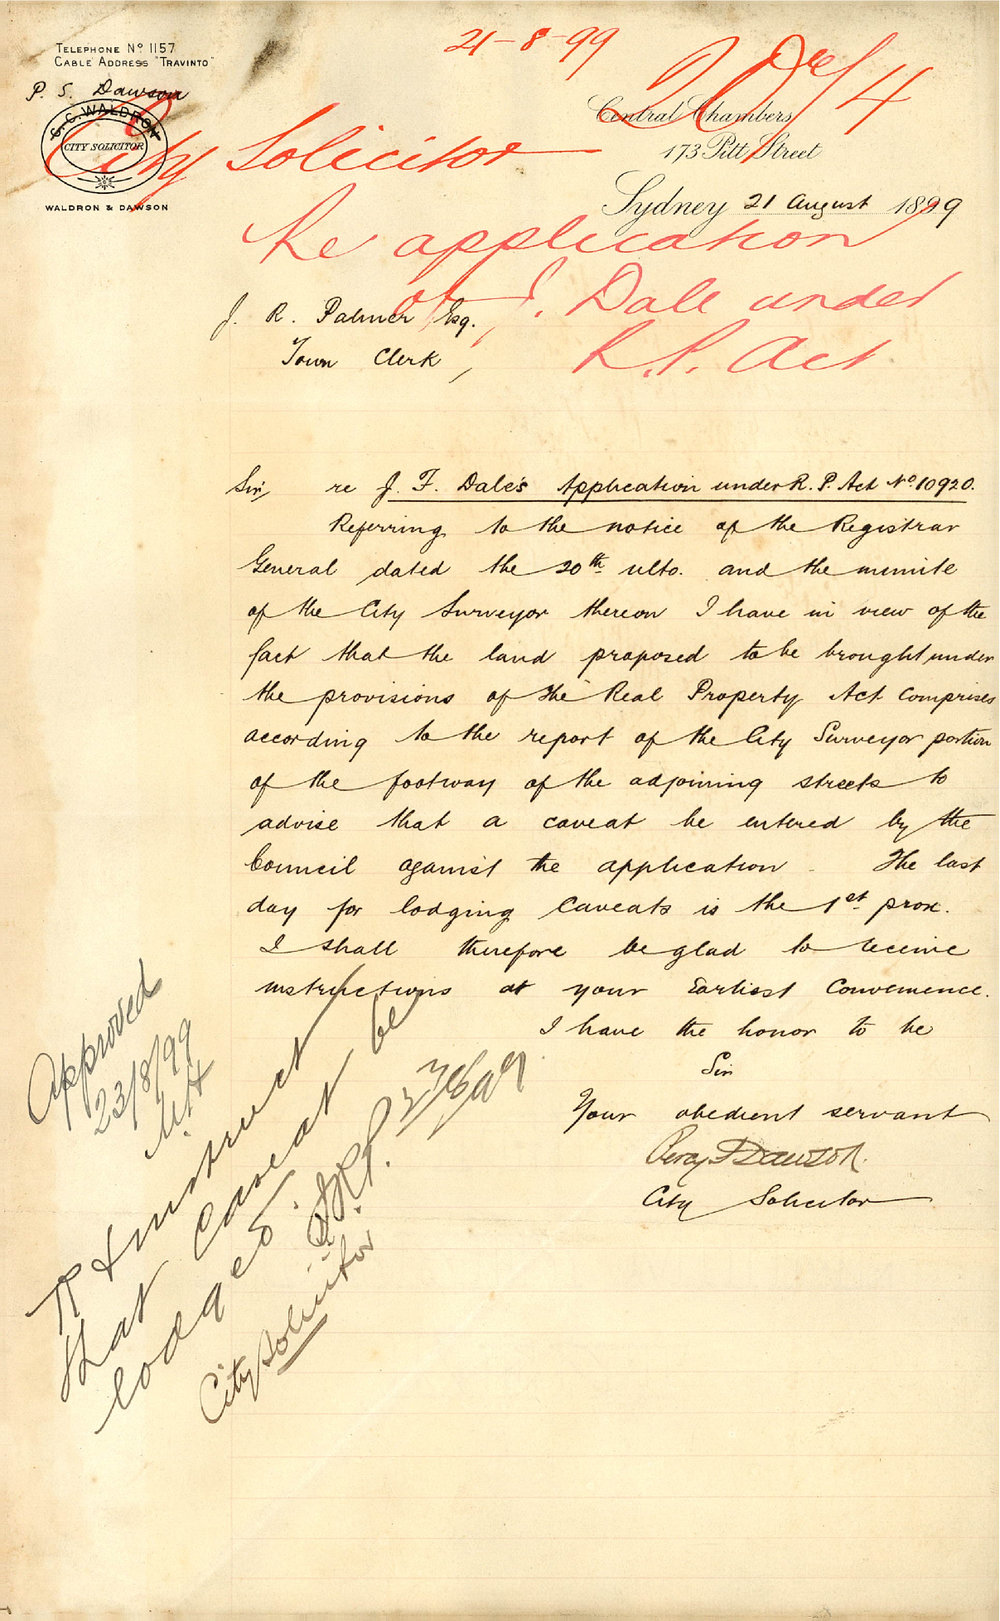 21-8-99
TELEPHONE No 1157
CABLE ADDRESS "TRAVINTO"
P. S. Dawson
C. C. WALDRON
CITY SOLICITOR
WALDRON & DAWSON
Central Chambers
173 Pitt Street
Sydney 21 August 1899
City Solicitor
Re application
of J. Dale under
R. P. Act
J. R. Palmer Esq.
Town Clerk,
Sir, re J. F. Dale's Application under R. P. Act No. 10920.
Referring to the notice of the Registrar
General dated the 20th ulto. and the minute
of the City Surveyor thereon I have in view of the
fact that the land proposed to be brought under
the provisions of the Real Property Act comprises
according to the report of the City Surveyor portion
of the footway of the adjoining streets to
advise that a caveat be entered by the
Council against the application. The last
day for lodging caveats is the 1st prox.
I shall therefore be glad to receive
instructions at your Earliest Convenience.
I have the honor to be
Sir
Your obedient servant
Percy Dawson.
City Solicitor
Approved
23/8/99
Instruct
that caveat be
lodged. J.R.P. 23/8/99
City Solicitor